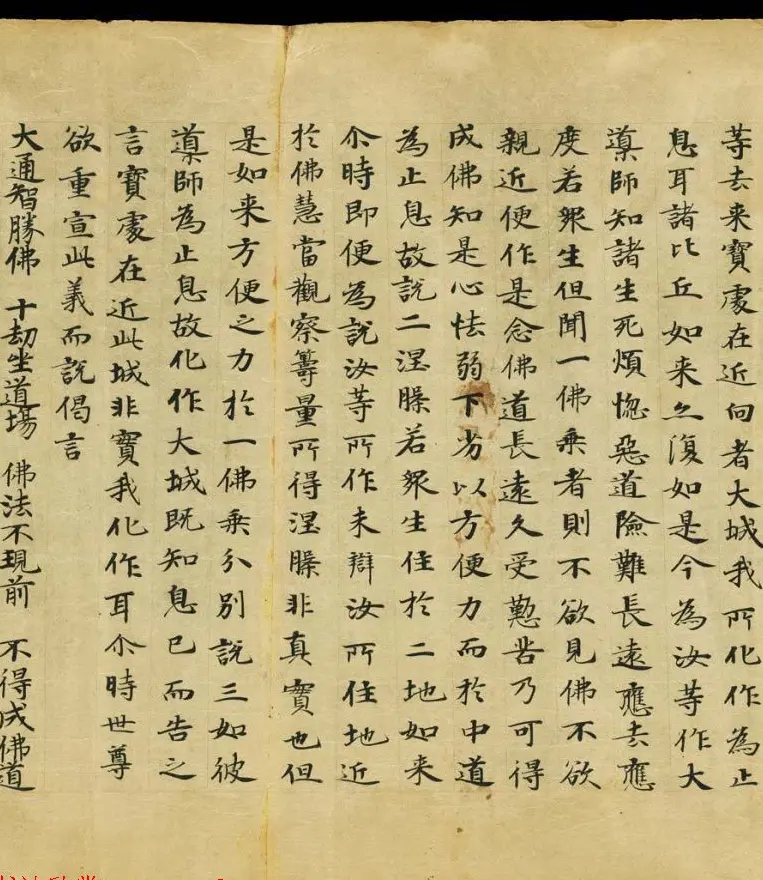 等去来寶處在近向者大城我所化作為止
息耳諸比丘如来亦復如是今為汝等作大
導師知諸生死煩惱惡道險難長遠應去應
度若衆生但聞一佛乗者則不欲見佛不欲
親近便作是念佛道長遠久受懃苦乃可得
成佛知是心怯弱下劣以方便力而於中道
為止息故說二涅槃若衆生住於二地如来
尒時即便為說汝等所作未辯汝所住地近
於佛慧當觀察籌量所得涅槃非真寶也但
是如来方便之力於一佛乗分別說三如彼
導師為止息故化作大城既知息已而告之
言寶處在近此城非寶我化作耳尒時世尊
欲重宣此義而說偈言
大通智勝佛 十劫坐道場 佛法不現前 不得成佛道